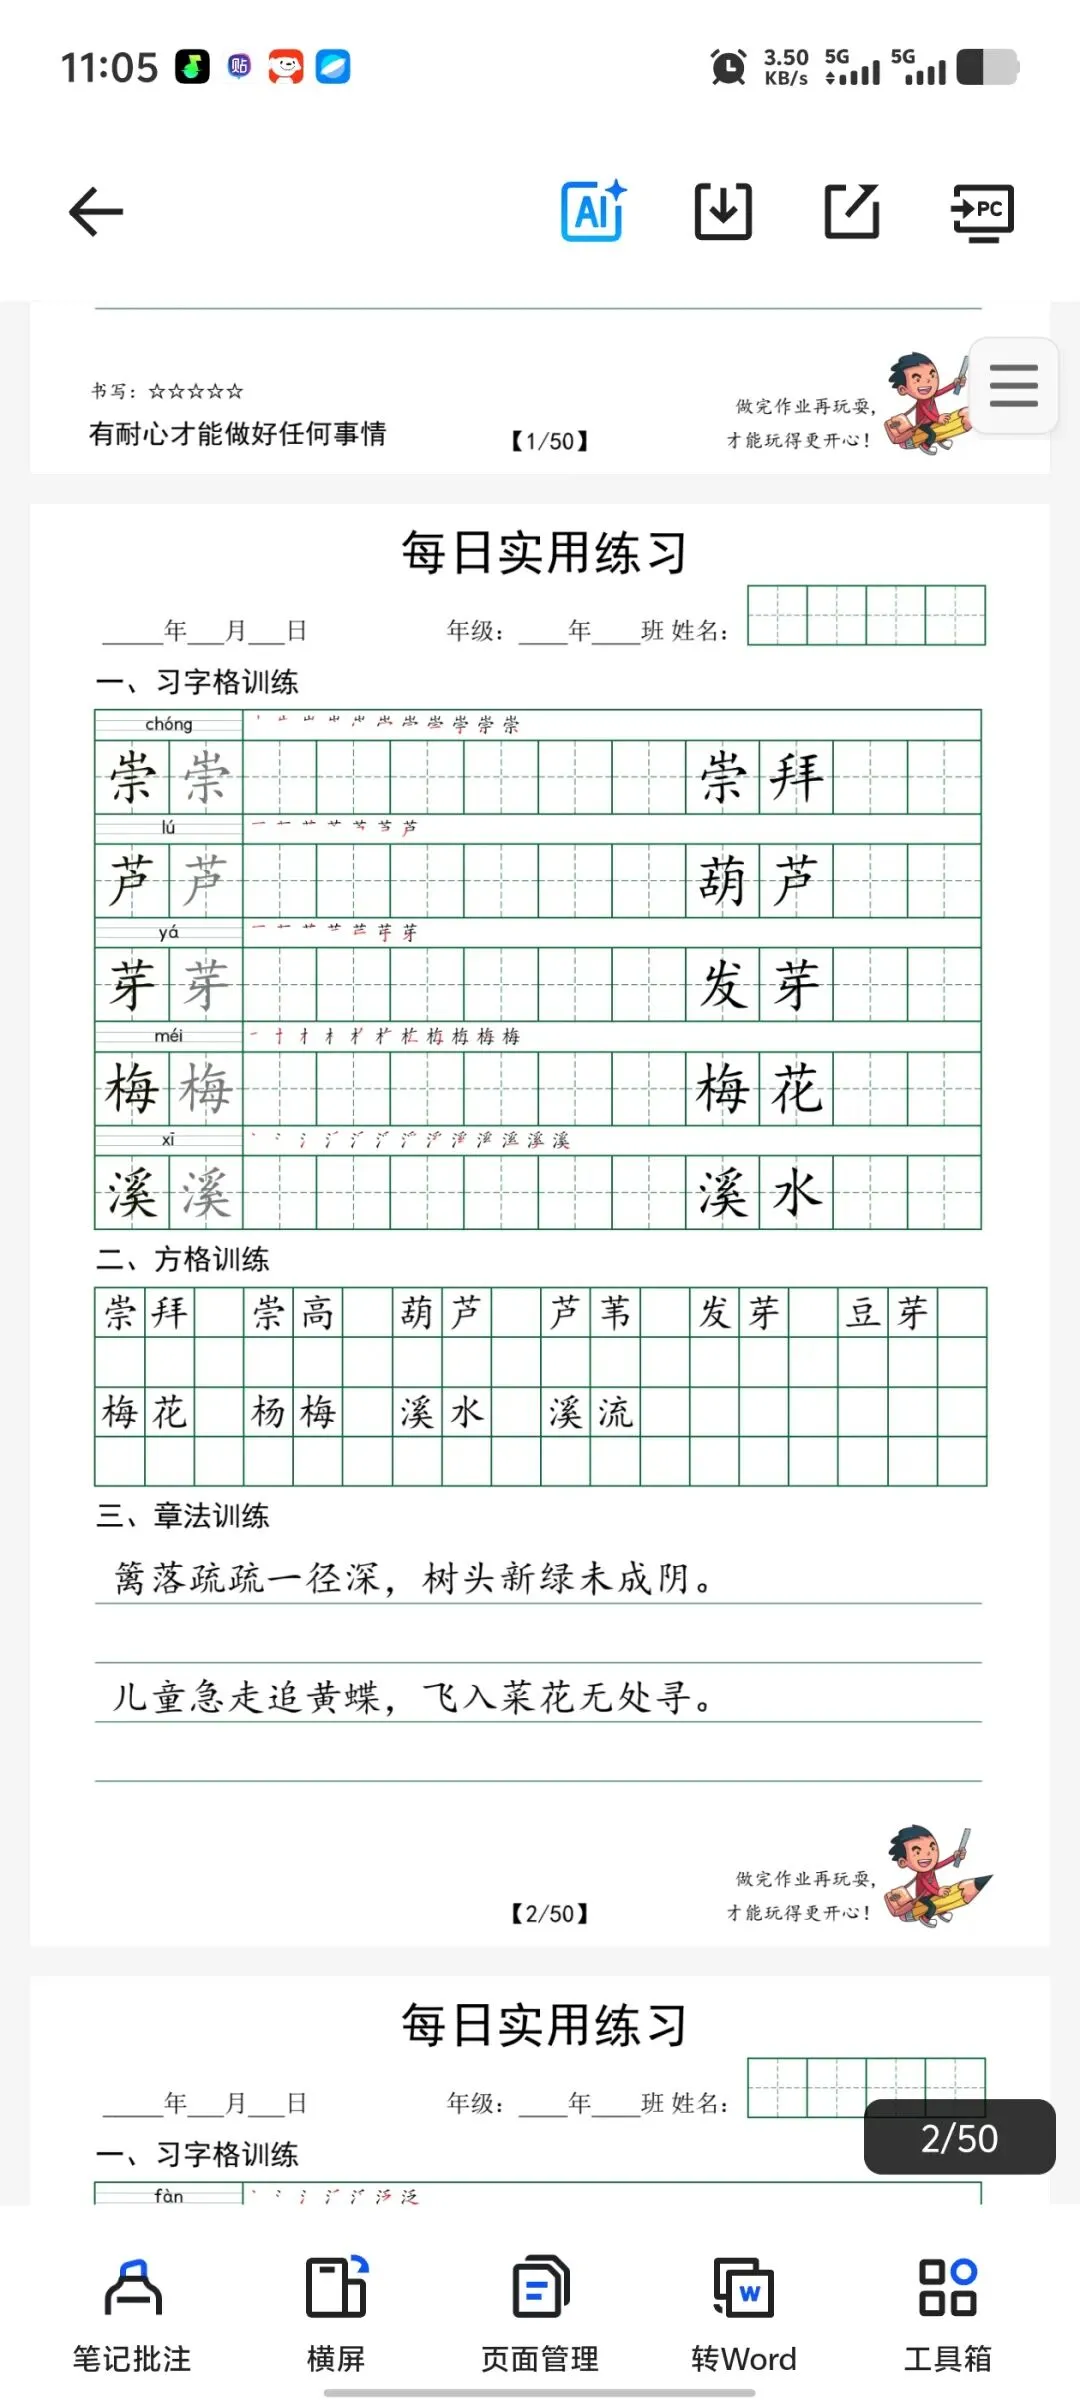 11:05 贴 3.50 KB/s 5G 5G
AI PC
书写：☆☆☆☆☆
有耐心才能做好任何事情
【1/50】
做完作业再玩耍，
才能玩得更开心！
每日实用练习
_____年___月___日 年级：____年____班 姓名：
一、习字格训练
chóng
崇 崇 崇 拜
lú
芦 芦 葫 芦
yá
芽 芽 发 芽
méi
梅 梅 梅 花
xī
溪 溪 溪 水
二、方格训练
崇 拜 崇 高 葫 芦 芦 苇 发 芽 豆 芽
梅 花 杨 梅 溪 水 溪 流
三、章法训练
篱落疏疏一径深，树头新绿未成阴。
儿童急走追黄蝶，飞入菜花无处寻。
【2/50】
做完作业再玩耍，
才能玩得更开心！
每日实用练习
_____年___月___日 年级：____年____班 姓名：
2/50
一、习字格训练
fàn
笔记批注 横屏 页面管理 转Word 工具箱